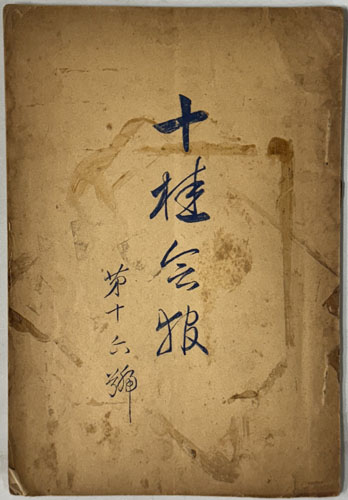 十桂会报
第十六號